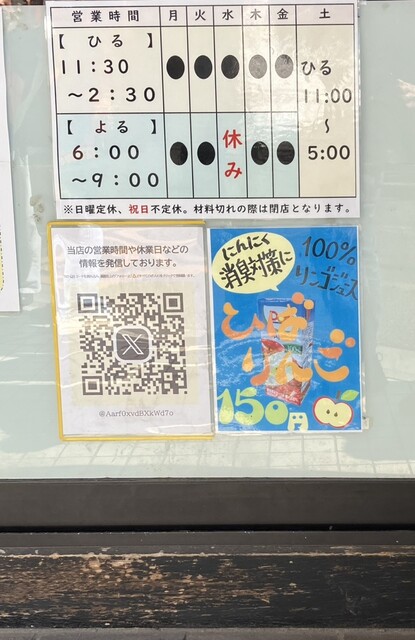 営業時間 月 火 水 木 金 土
【 ひる 】
11:30
～2:30
● ● ● ● ●
ひる
11:00
～
5:00
【 よる 】
6:00
～9:00
● ● 休み ● ●
※日曜定休、祝日不定休。材料切れの際は閉店となります。
当店の営業時間や休業日などの
情報を発信しております。
@Aarf0xvdBXkWd7o
にんにく
消臭対策に
100%
リンゴジュース
りんご
150円